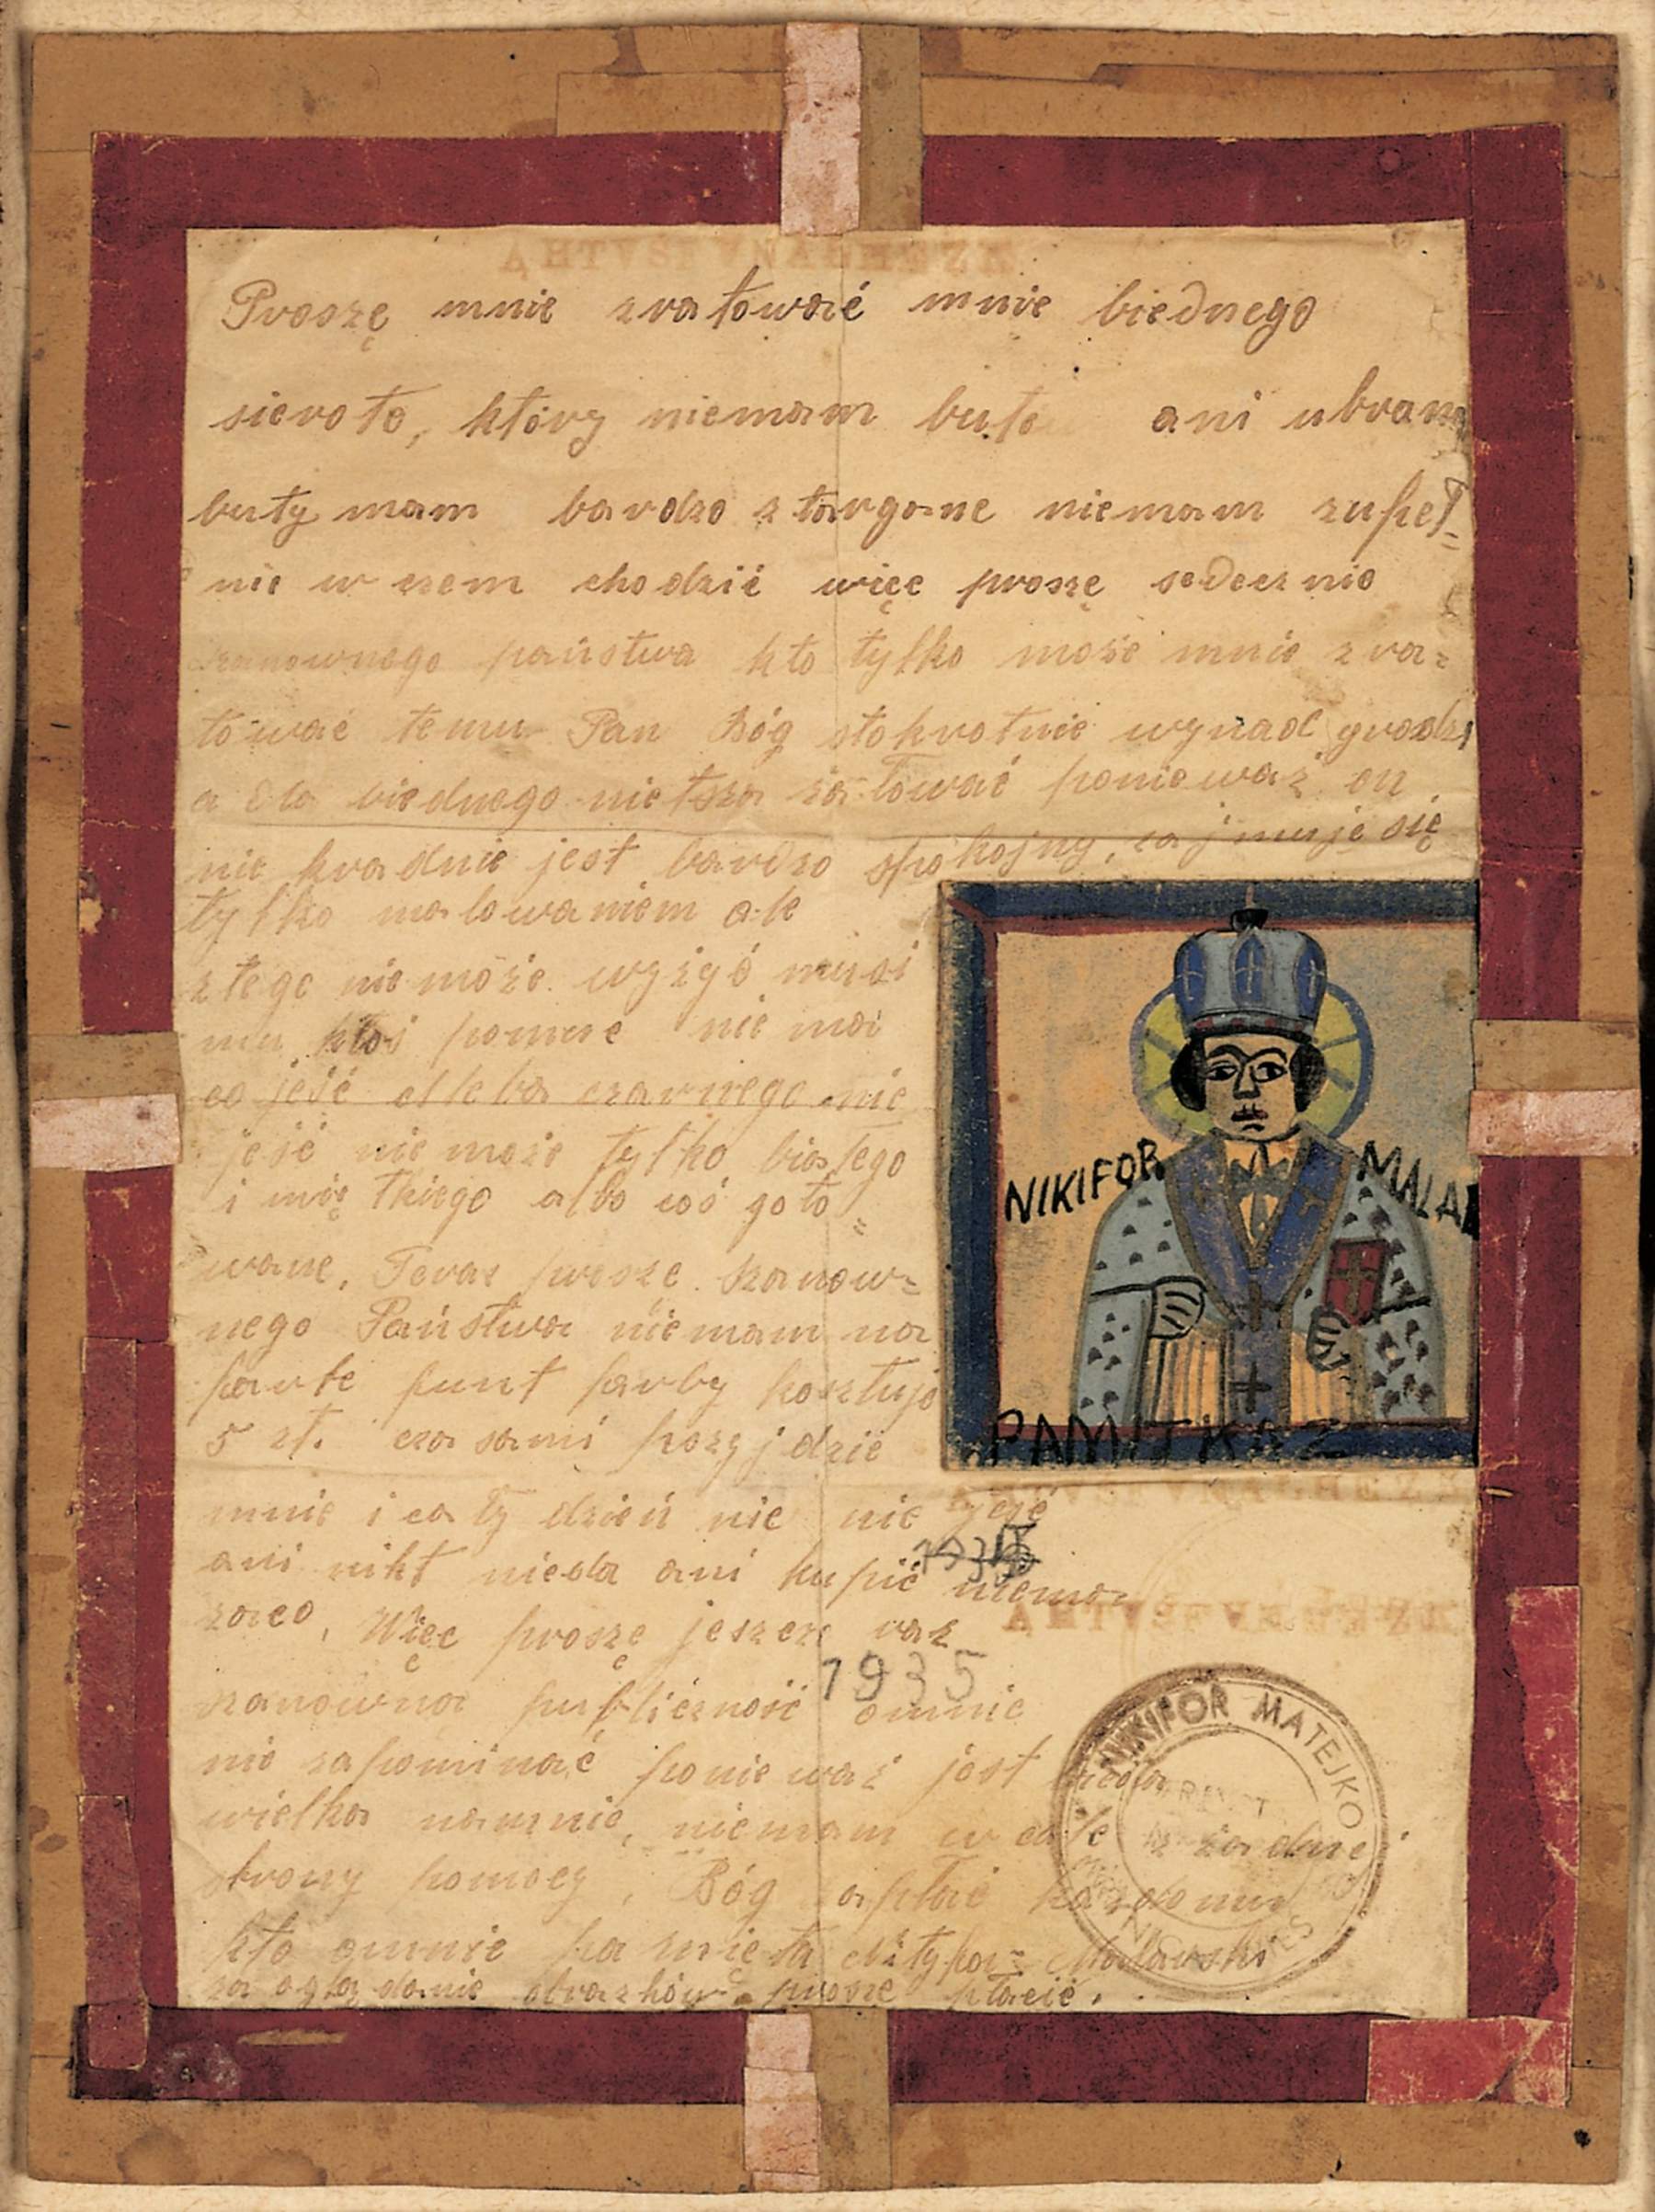 Proszę mnie zratować mnie biednego
sierote, który niemam buto ani ubran
buty mam bardzo ztargane niemam zupeł=
nie w czem chodzić więc proszę sedecznie
szanownego państwa kto tylko może mnie zra=
tować temu Pan Bóg stokrotnie wynadgrodzi
a dla biednego nietrza żałować ponieważ on
nie kradnie jest bardzo spokojny, zajmuje się
tylko malowaniem ale
z tego nie może wyżyć musi
mu ktoś pomuc nie ma
co jeść chleba czarnego nie
jeść nie może tylko białego
i miętkiego albo coś goto=
wane. Teraz proszę szanow=
nego Państwa niemam na
farbe funt farby kosztuje
5 zł. czasami przyjdzie
mnie i cały dzień nic nie jeść
ani nikt nieda ani kupić niema
zaco. Więc proszę jeszcze raz
1935
szanowna publiczność omnie
nie zapominać ponieważ jest bieda
wielka namnie, niemam w cale z żadnej
strony pomocy, Bóg zapłać każdemu
kto omnie pamięta Netyfor Malarski
za oglądanie obrazków proszę płacić.
NIKIFOR MALA
PAMITKZZ
NIKIFOR MATEJKO